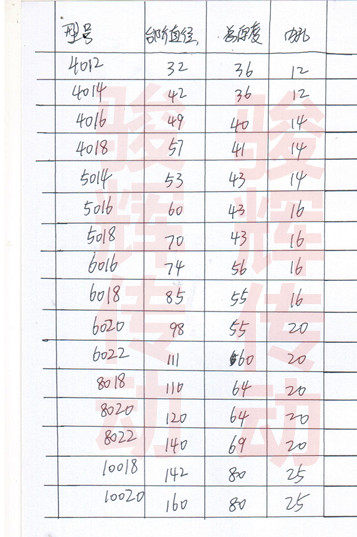 型号 台阶直径 总厚度 内孔
4012 32 36 12
4014 42 36 12
4016 49 40 14
4018 57 41 14
5014 53 43 14
5016 60 43 16
5018 70 43 16
6016 74 56 16
6018 85 55 16
6020 98 55 20
6022 111 60 20
8018 110 64 20
8020 120 64 20
8022 140 69 20
10018 142 80 25
10020 160 80 25
骏辉传动
骏辉传动